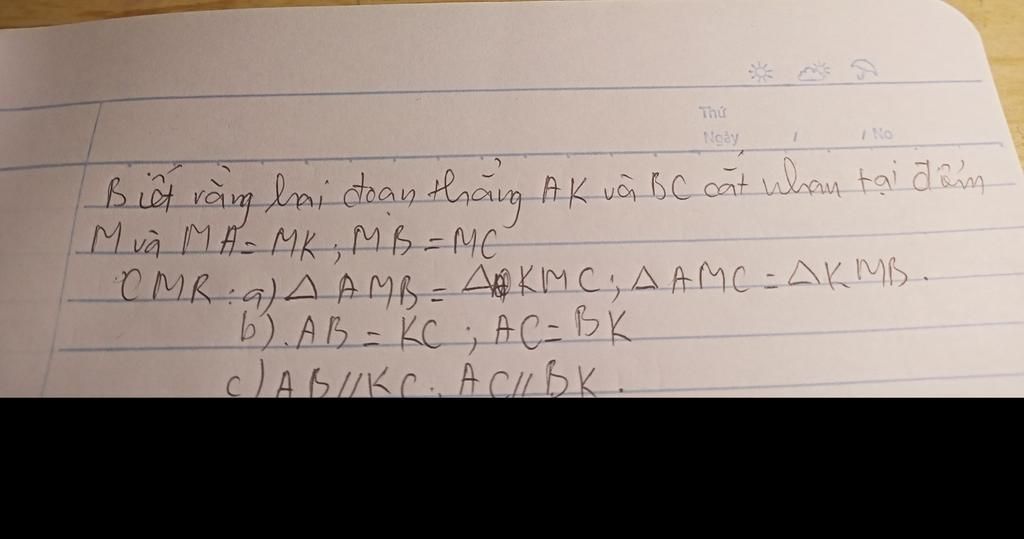 Thứ
Ngày / / No
Biết rằng hai đoạn thẳng AK và BC cắt nhau tại điểm
M và MA = MK ; MB = MC
CMR : a) Δ AMB = Δ KMC ; Δ AMC = Δ KMB .
b). AB = KC ; AC = BK
c) AB // KC . AC // BK .